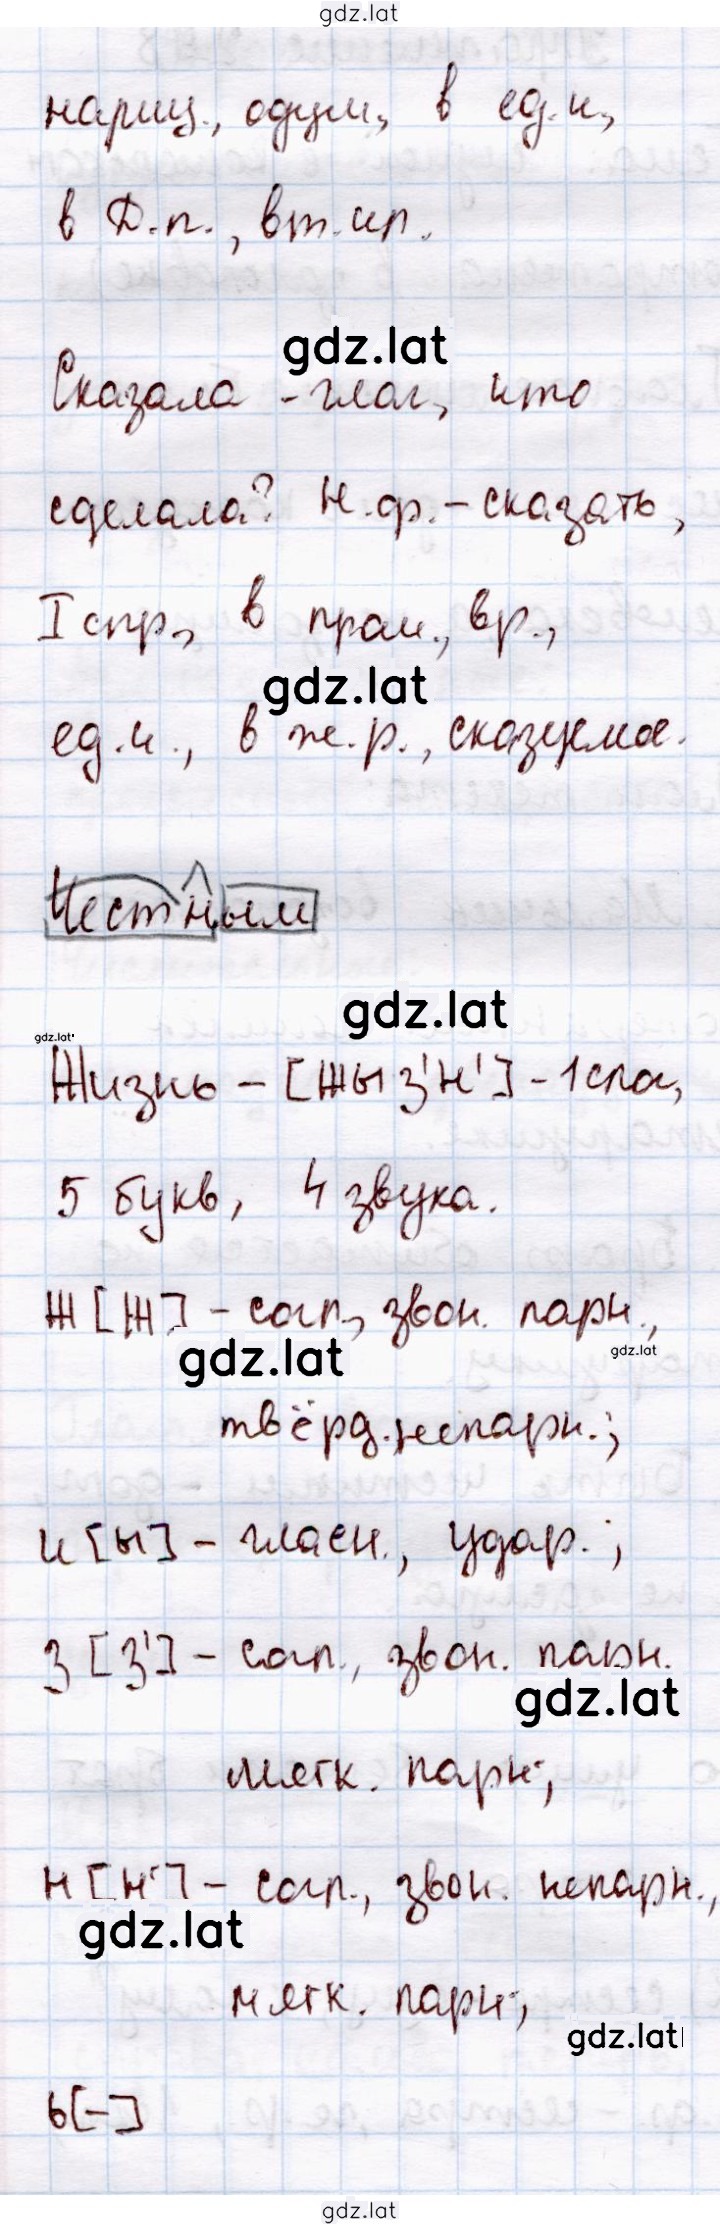 gdz.lat
нариц., одуш., в ед.ч.,
в Д.п., вт.чл.
gdz.lat
Сказала - глаг., что
сделала? Н.ф. - сказать,
I спр., в прош., вр.,
gdz.lat
ед.ч., в ж.р., сказуемое.
Честным
gdz.lat
gdz.lat
Жизнь - [жыз'н'] - 1 слог,
5 букв, 4 звука.
Ж [ж] - согл., звон. парн.,
gdz.lat
gdz.lat
твёрд. непарн.;
и [ы] - гласн., удар.;
з [з'] - согл., звон. парн.
gdz.lat
мягк. парн.;
н [н'] - согл., звон. непарн.,
gdz.lat
мягк. парн.;
gdz.lat
ь [-]
gdz.lat